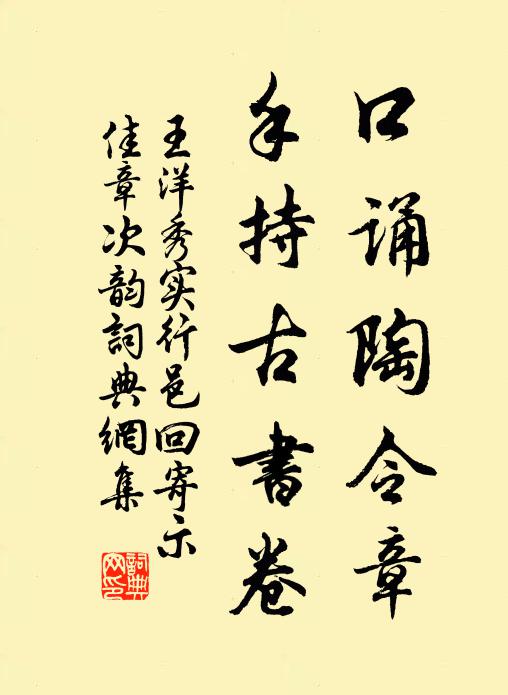 口诵陶令章
手持古書卷
王洋秀实行邑回寄示
佳章次韵詞典網集
詞典
网印